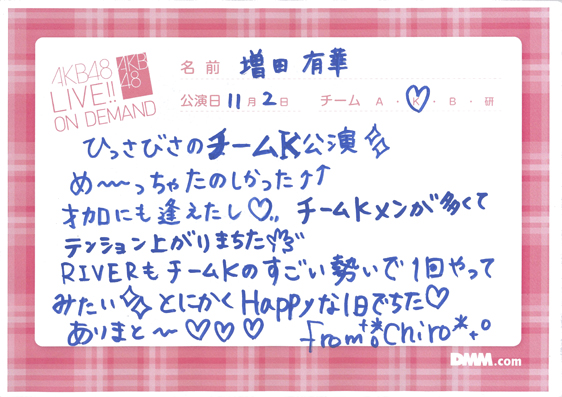 AKB48
LIVE!!
ON DEMAND
AKB
48
名前 増田 有華
公演日 11月2日 チーム A・K・B・研
ひっさびさのチームK公演
め〜〜っちゃたのしかった↑↑
オカロにも逢えたし♡,, チームKメンが多くて
テンション上がりまちた
RIVERもチームKのすごい勢いで1回やって
みたい とにかくHappyな1日でちた♡
ありまと〜♡♡♡ from Chiro
DMM.com